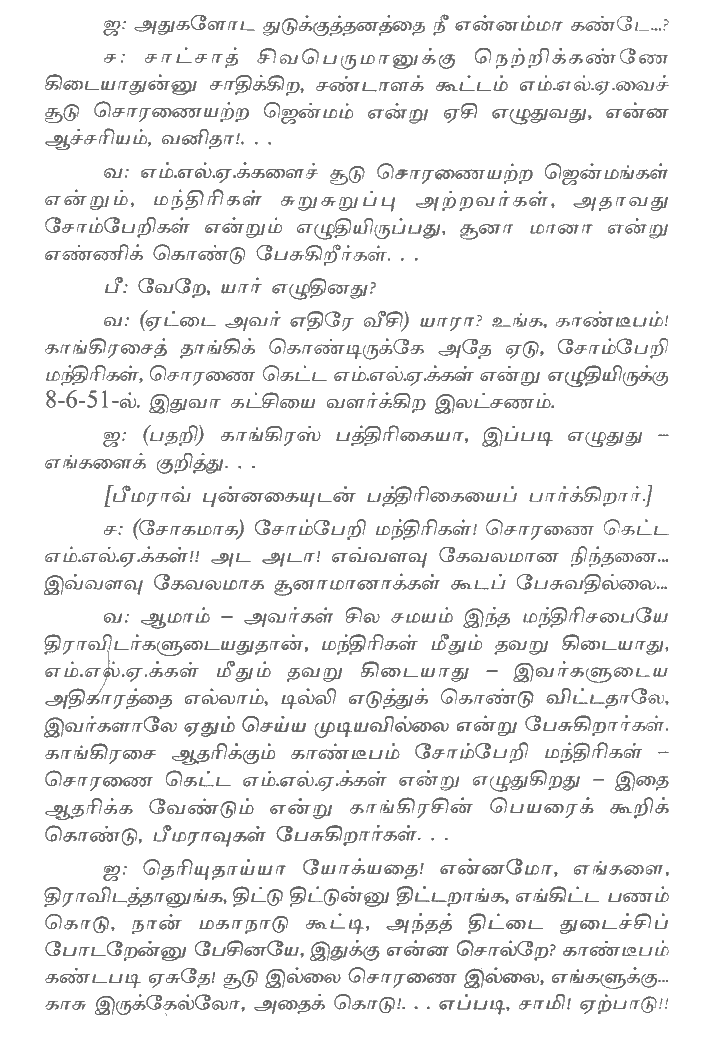 ஐ: அதுகளோட துடுக்குத்தனத்தை நீ என்னம்மா கண்டே...?
ச: சாட்சாத் சிவபெருமானுக்கு நெற்றிக்கண்ணே
கிடையாதுன்னு சாதிக்கிற, சண்டாளக் கூட்டம் எம்.எல்.ஏ.வைச்
சூடு சொரணையற்ற ஜென்மம் என்று ஏசி எழுதுவது, என்ன
ஆச்சரியம், வனிதா!. . .
வ: எம்.எல்.ஏ.க்களைச் சூடு சொரணையற்ற ஜென்மங்கள்
என்றும், மந்திரிகள் சுறுசுறுப்பு அற்றவர்கள், அதாவது
சோம்பேறிகள் என்றும் எழுதியிருப்பது, சூனா மானா என்று
எண்ணிக் கொண்டு பேசுகிறீர்கள். . .
பீ: வேறே, யார் எழுதினது?
வ: (ஏட்டை அவர் எதிரே வீசி) யாரா? உங்க, காண்டீபம்!
காங்கிரசைத் தாங்கிக் கொண்டிருக்கே அதே ஏடு, சோம்பேறி
மந்திரிகள், சொரணை கெட்ட எம்.எல்.ஏ.க்கள் என்று எழுதியிருக்கு
8-6-51-ல். இதுவா கட்சியை வளர்க்கிற இலட்சணம்.
ஐ: (பதறி) காங்கிரஸ் பத்திரிகையா, இப்படி எழுதுது –
எங்களைக் குறித்து. . .
[பீமராவ் புன்னகையுடன் பத்திரிகையைப் பார்க்கிறார்.]
ச: (சோகமாக) சோம்பேறி மந்திரிகள்! சொரணை கெட்ட
எம்.எல்.ஏ.க்கள்!! அட அடா! எவ்வளவு கேவலமான நிந்தனை...
இவ்வளவு கேவலமாக சூனாமானாக்கள் கூடப் பேசுவதில்லை...
வ: ஆமாம் – அவர்கள் சில சமயம் இந்த மந்திரிசபையே
திராவிடர்களுடையதுதான், மந்திரிகள் மீதும் தவறு கிடையாது,
எம்.எல்.ஏ.க்கள் மீதும் தவறு கிடையாது – இவர்களுடைய
அதிகாரத்தை எல்லாம், டில்லி எடுத்துக் கொண்டு விட்டதாலே,
இவர்களாலே ஏதும் செய்ய முடியவில்லை என்று பேசுகிறார்கள்.
காங்கிரசை ஆதரிக்கும் காண்டீபம் சோம்பேறி மந்திரிகள் –
சொரணை கெட்ட எம்.எல்.ஏ.க்கள் என்று எழுதுகிறது – இதை
ஆதரிக்க வேண்டும் என்று காங்கிரசின் பெயரைக் கூறிக்
கொண்டு, பீமராவுகள் பேசுகிறார்கள். . .
ஐ: தெரியுதாய்யா யோக்யதை! என்னமோ, எங்களை,
திராவிடத்தானுங்க, திட்டு திட்டுன்னு திட்டறாங்க, எங்கிட்ட பணம்
கொடு, நான் மகாநாடு கூட்டி, அந்தத் திட்டை துடைச்சிப்
போடறேன்னு பேசினயே, இதுக்கு என்ன சொல்றே? காண்டீபம்
கண்டபடி ஏசுதே! சூடு இல்லை சொரணை இல்லை, எங்களுக்கு...
காசு இருக்கேல்லோ, அதைக் கொடு!. . . எப்படி, சாமி! ஏற்பாடு!!